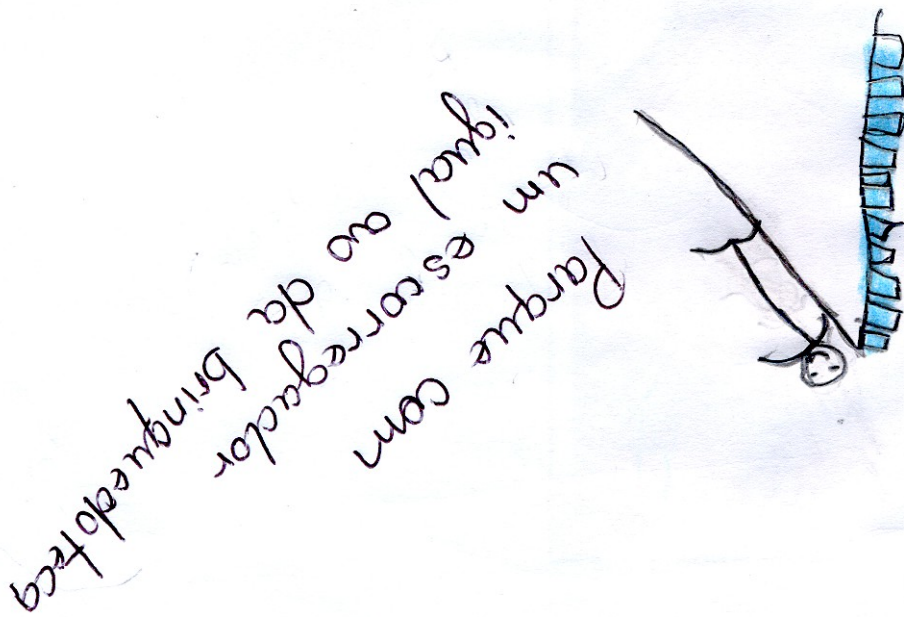 Parque com
um escorregador
igual ao da brinquedoteca